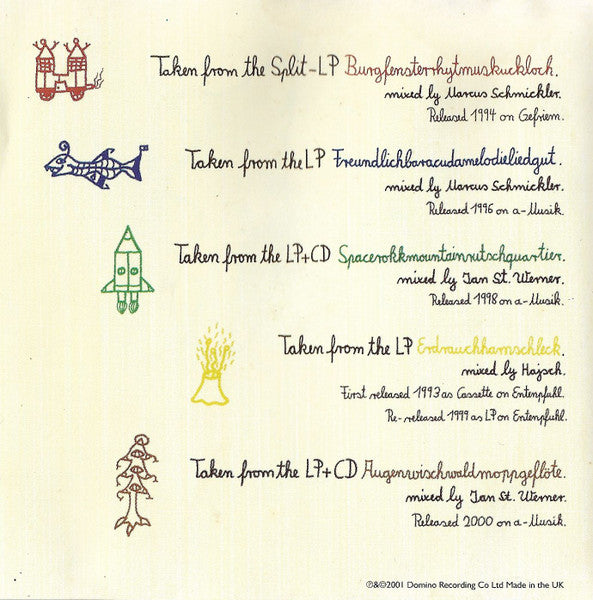 Taken from the Split-LP Burgfensterrhytmuskuckloch.
mixed by Marcus Schmickler.
Released 1994 on Gefriem.
Taken from the LP Freundlichbaracudamelodieliedgut.
mixed by Marcus Schmickler.
Released 1996 on a-Musik.
Taken from the LP+CD Spacerokkmountainrutschquartier.
mixed by Jan St. Werner.
Released 1998 on a-Musik.
Taken from the LP Erdrauchharnschleck.
mixed by Hajsch.
First released 1993 as Cassette on Entenpfuhl.
Re-released 1999 as LP on Entenpfuhl.
Taken from the LP+CD Augenwischwaldmoppgeflöte.
mixed by Jan St. Werner.
Released 2000 on a-Musik.
℗&©2001 Domino Recording Co Ltd Made in the UK